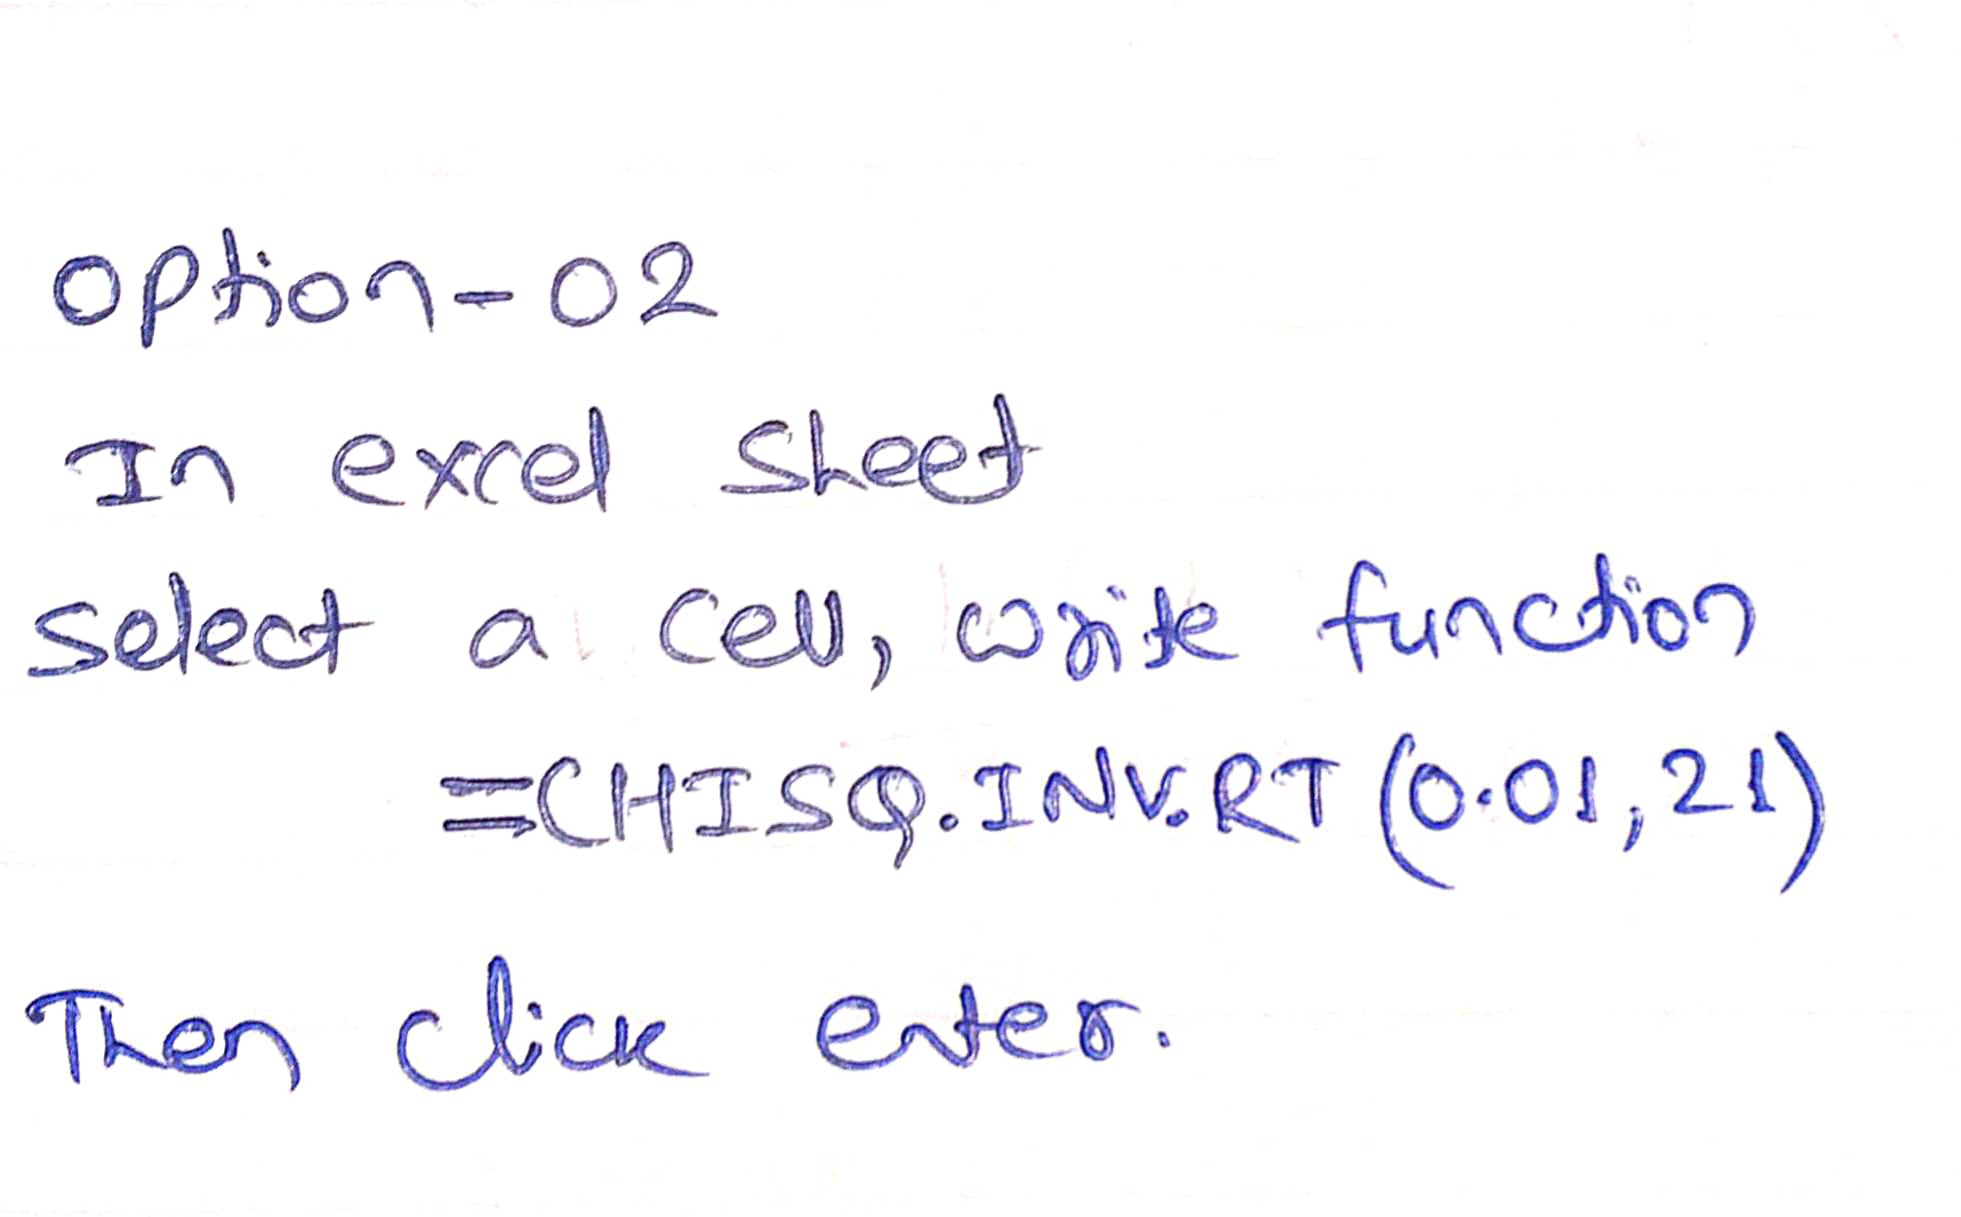 option-02
In excel sheet
select a cell, write function
=CHISQ.INV.RT(0.01,21)
Then click enter.